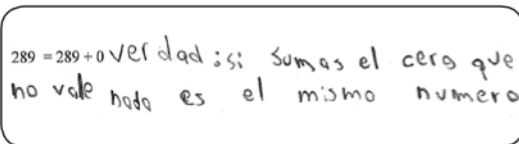 289 = 289 + 0 verdad: si sumas el cero que
no vale nada es el mismo numero